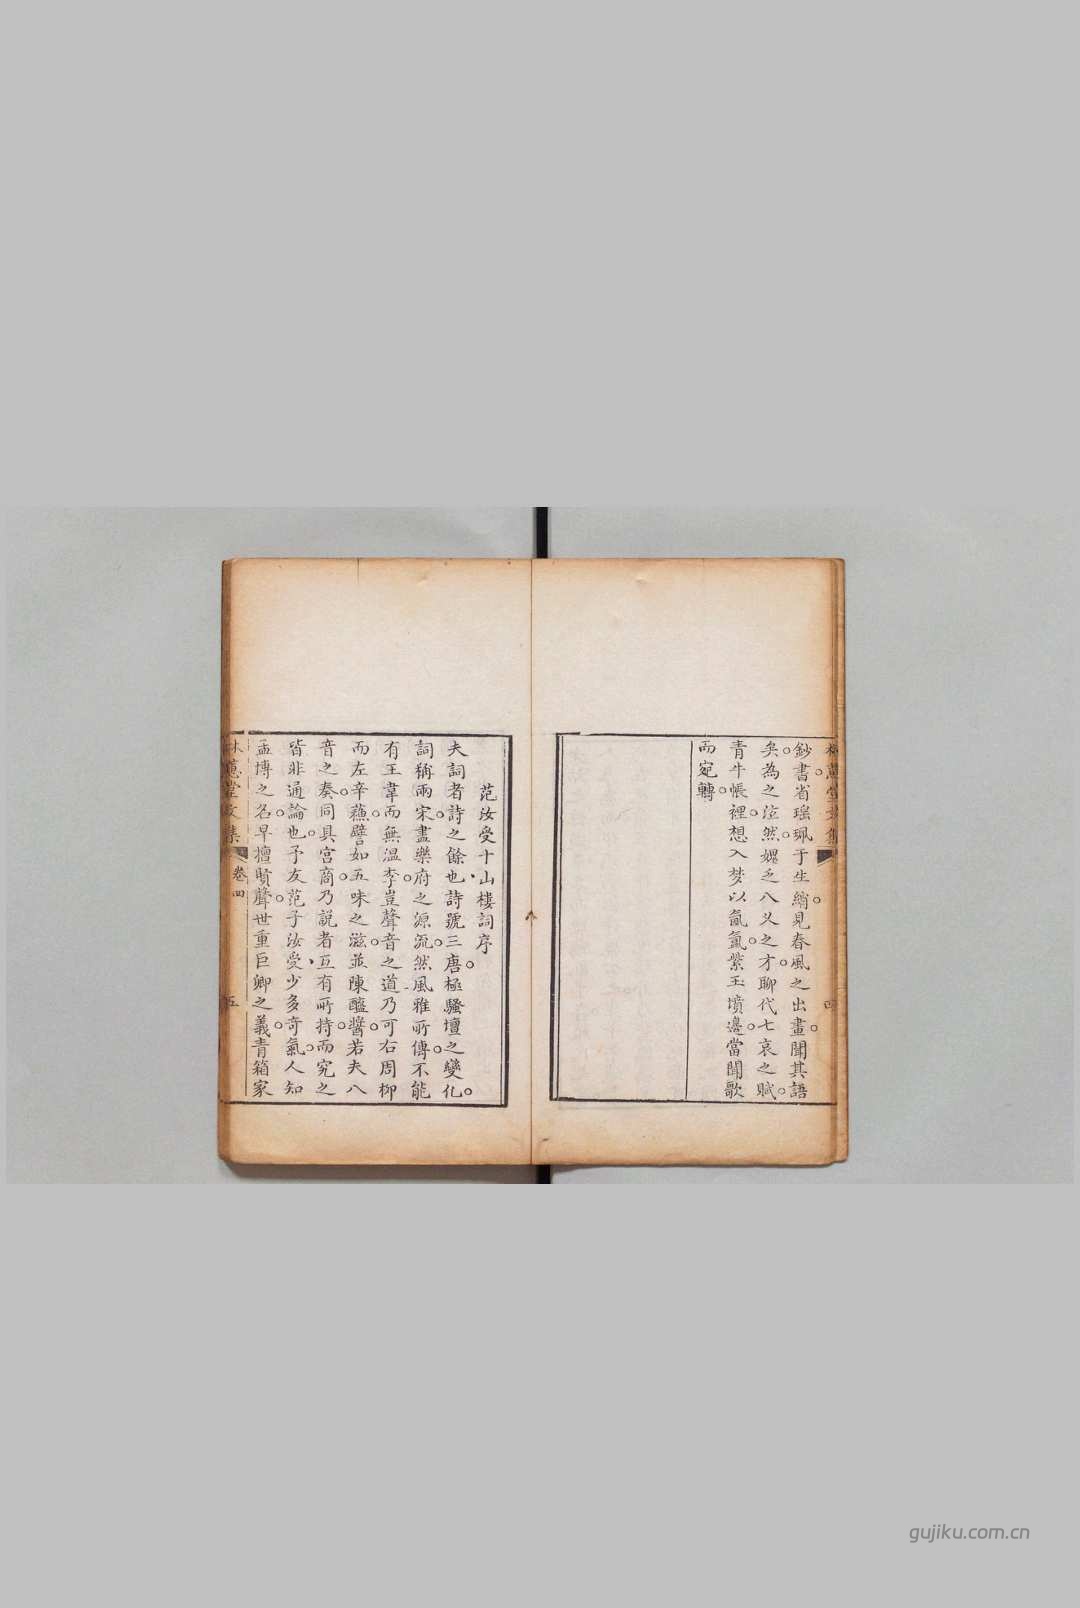 鈔書省瑶珮于生綃見春風之出畫聞其語
矣為之泣然媿乏八义之才聊代七哀之賦
青牛帳裡想入梦以氤氲紫玉墳邊當聞歌
而宛轉
范汝受十山樓詞序
夫詞者詩之餘也詩號三唐極騷壇之變化
詞稱兩宋盡樂府之源流然風雅所傳不能
有王韋而無溫李豈聲音之道乃可右周柳
而左辛蘓譬如五味之滋並陳醯醬若夫八
音之奏同具宮商乃說者互有所持而究之
皆非通論也予友范子汝受少多奇氣人知
孟博之名早擅賢聲世重巨卿之義青箱家
林蕙堂文集
卷四
五
gujiku.com.cn